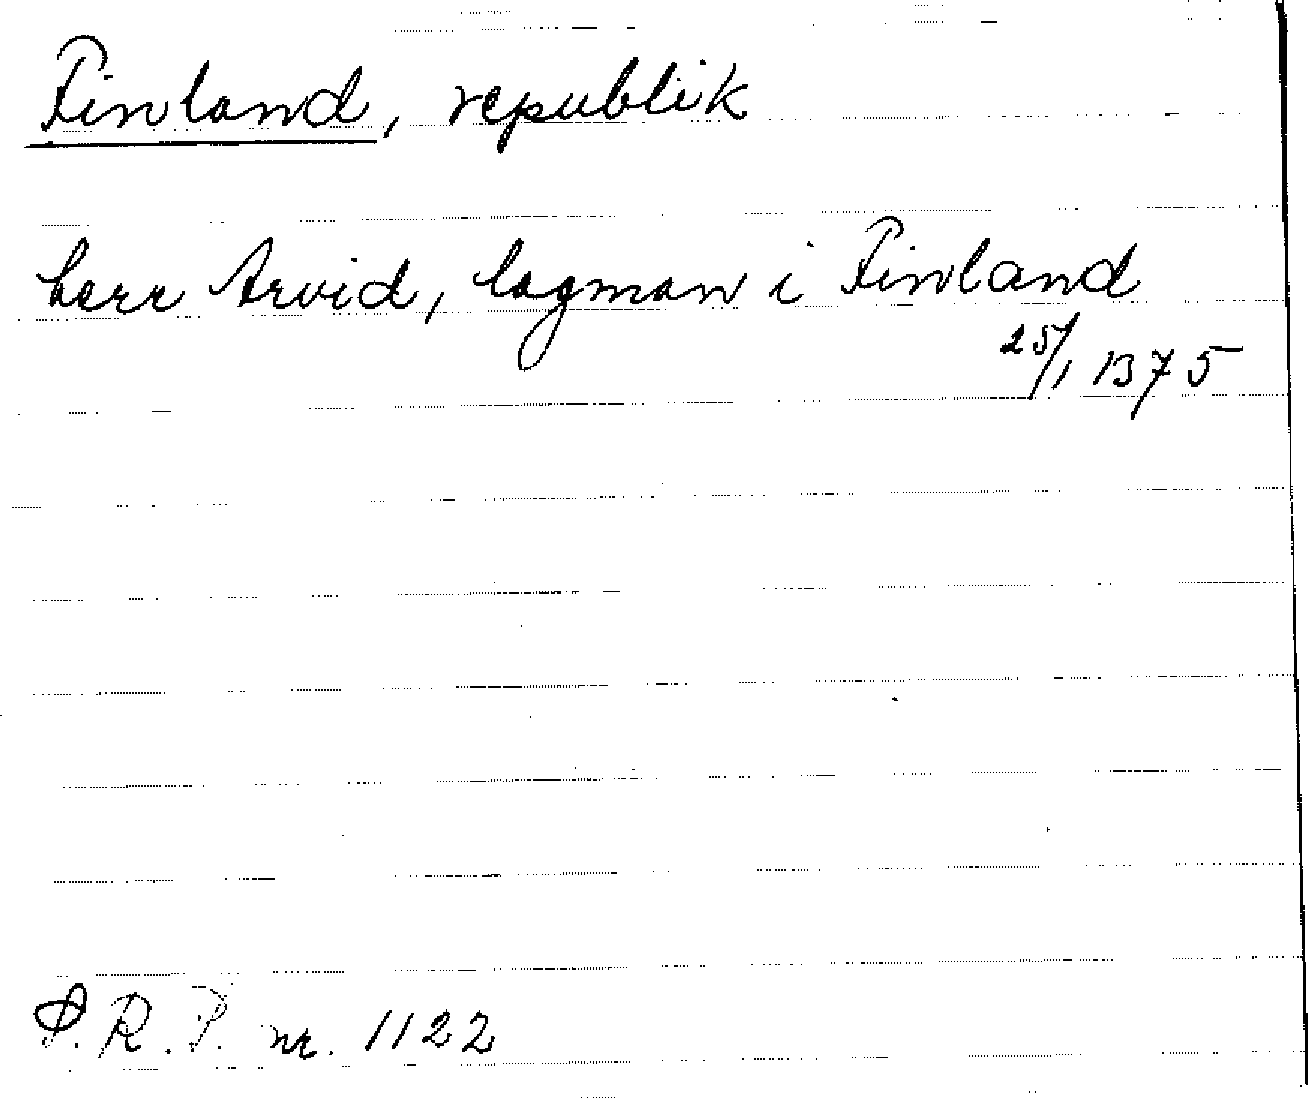 Finland, republik
herr Arvid, lagman i Finland
25/1 1375
S.R.P. nr. 1122